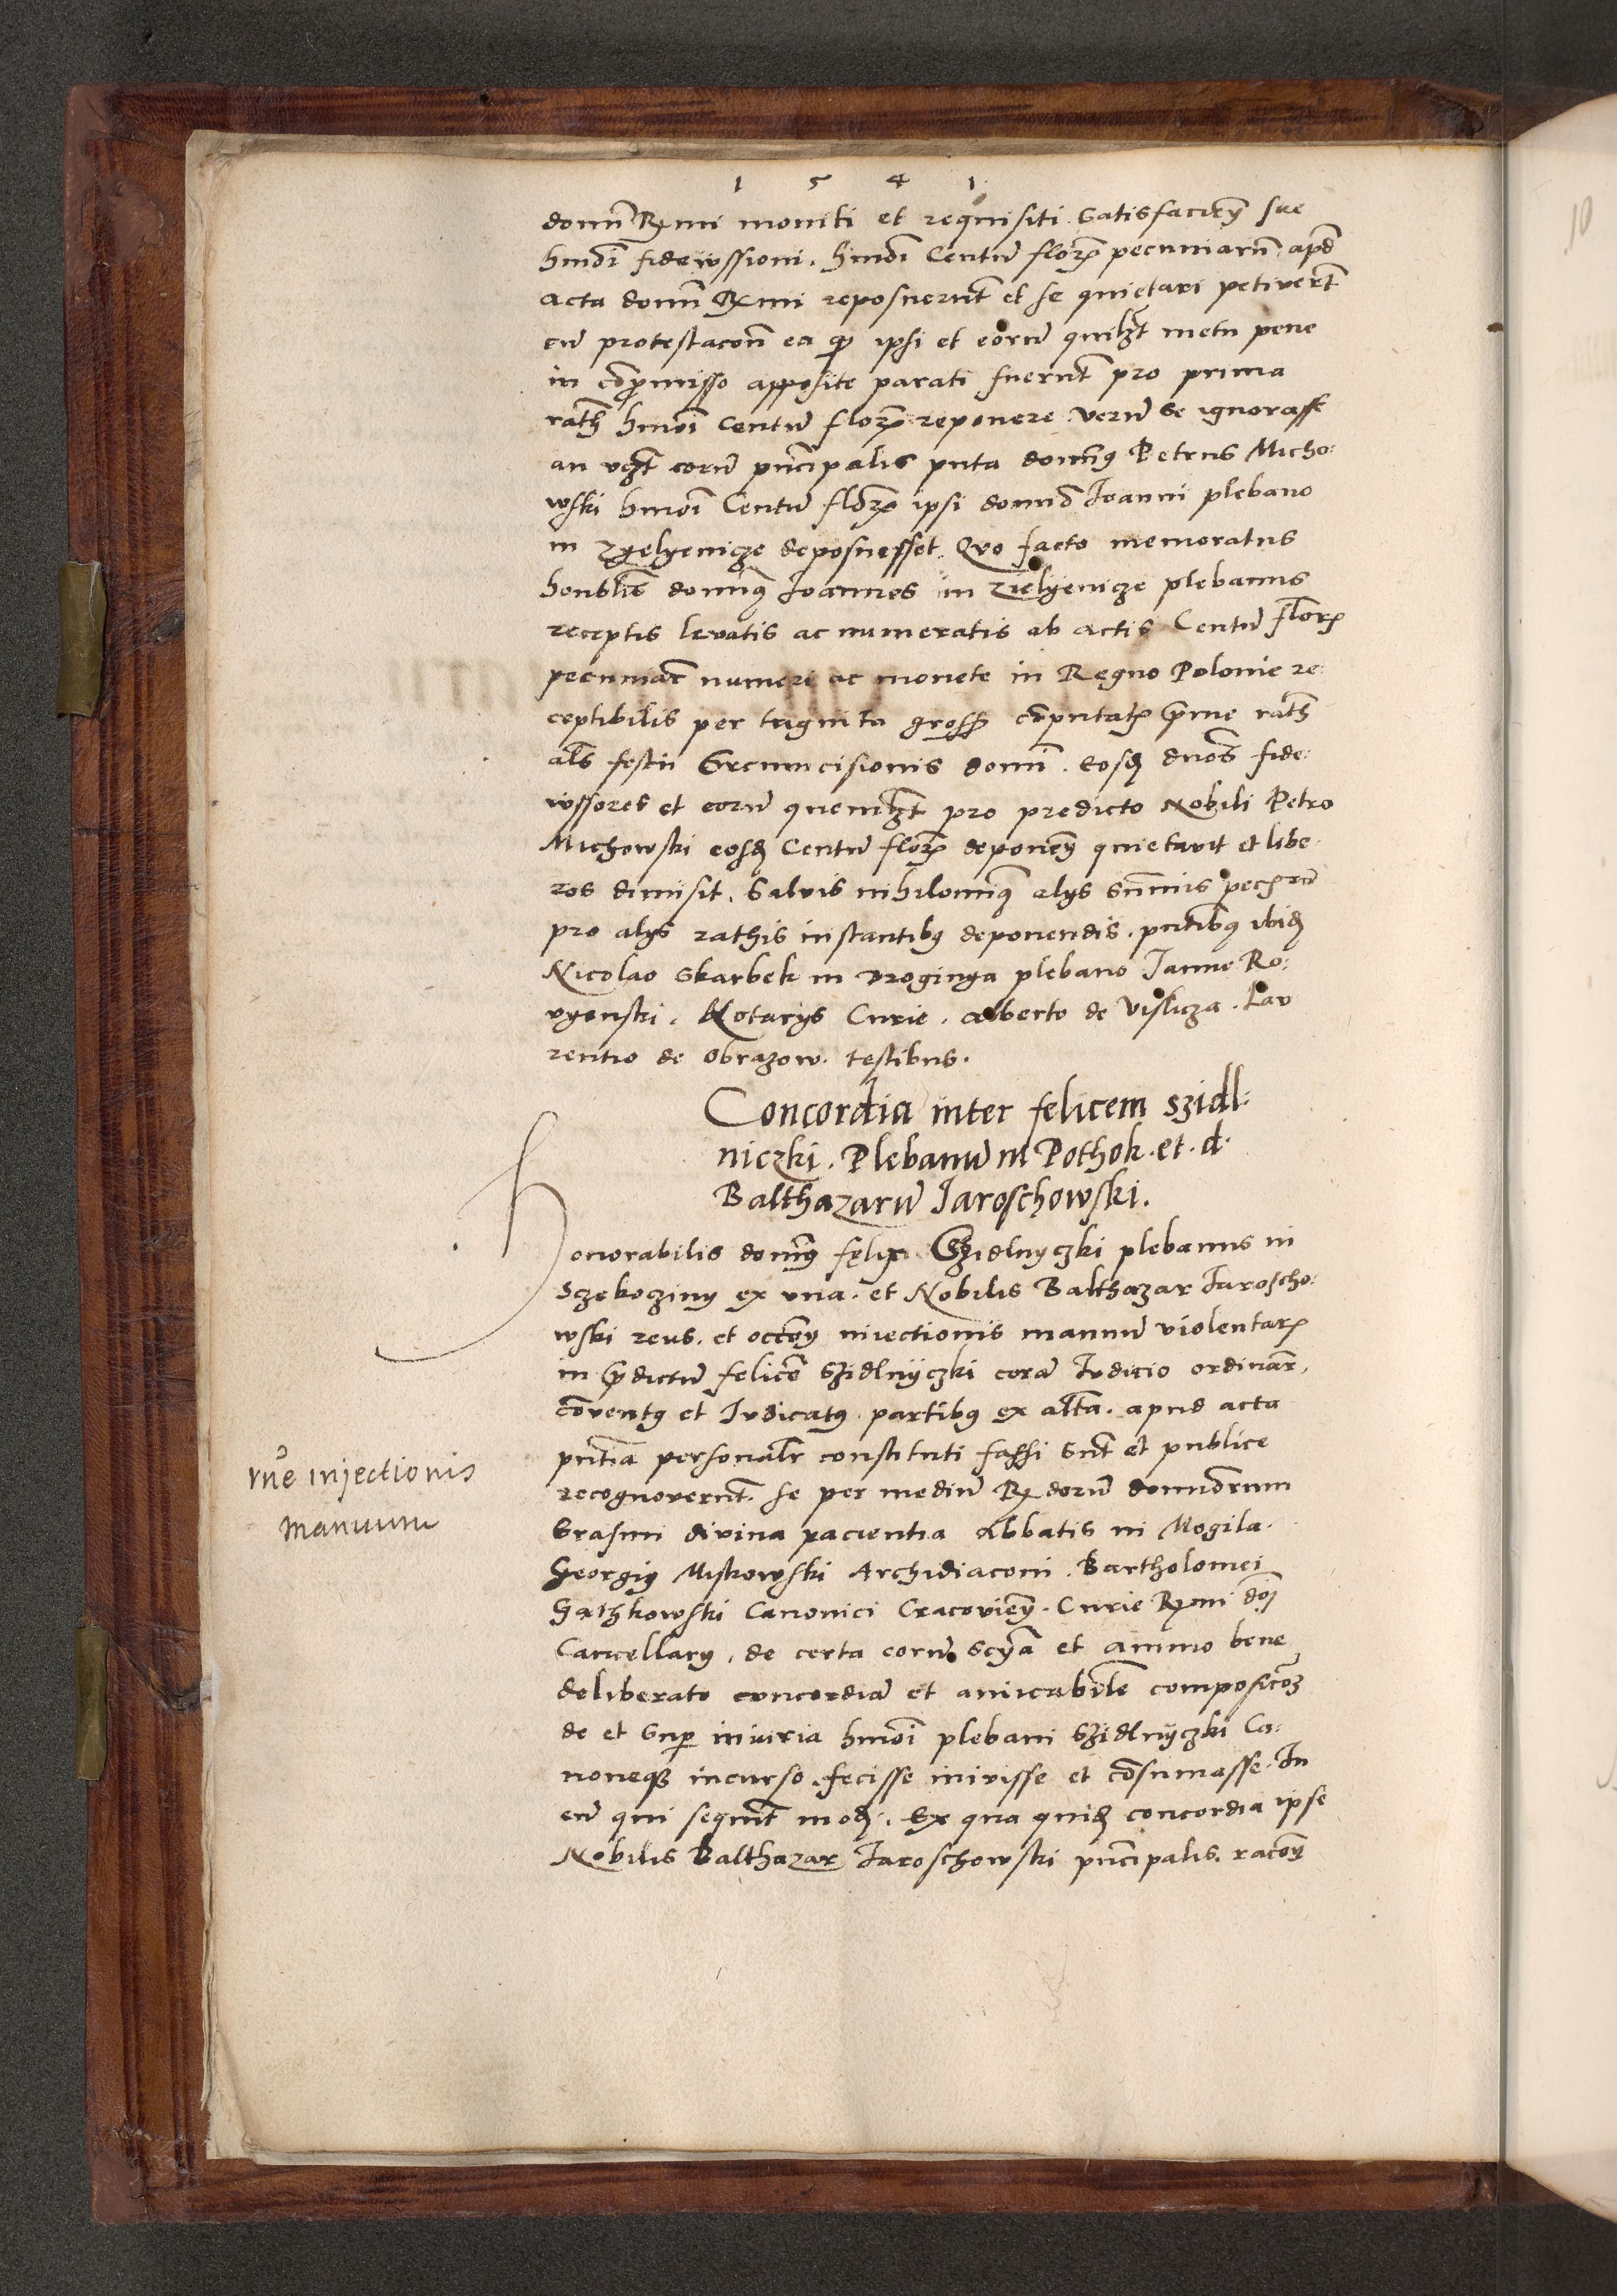 1 5 4 1
domĩ Rmi moniti et requisiti Satisfacieñ sue
hmõi fideiussioni. hmõi Centũ floreñ pecuniarũ apd
acta domĩ Rmi reposuerũt et se quietari petiverũt
cũ protestacoñ ea qd ipsi et eorũ quilzt metu pene
in cõpromisso apposite parati fuerũt pro prima
rath hmõi Centũ floreñ reponere verũ se ignorasse
an eorũ prĩcipalis puta domĩus Petrus Micho:
wski hmõi Centũ floreñ ipsi domĩo Joanni plebano
in Zyelyenicze deposuisset. Quo facto memoratus
honblis domĩus Joannes in Zielyenicze plebanus
receptis levatis ac numeratis ab actis Centũ floreñ
pecuniar numeri ac monete in Regno Polonie re:
ceptibilis per triginta gross cõputatis p̃me rath
als festi Circumcisionis domĩ. Eosd duos fide:
iussores et eorũ quemlzt pro predicto Nobili Petro
Michowski eosd Centũ floreñ deponeñ quietavit et libe:
ros dimisit. Salvis nihilomiq alys sũmis pecrũ
pro alys rathis instantibq deponendis. pñtibq ibid
Nicolao Skarbek in Droginya plebano Janne Ro:
vyenski. Notarys Curie. alberto de Vislicza. Lav
rentio de Obrazow. testibus.
Concordia inter felicem Szidl:
niczki. Plebanũ in Pothok. et. d.
Balthazarũ Jaroschowski.
Honorabilis domĩq felix Szidlnyczki plebanus in
Sczekocziny ex una. et Nobilis Balthazar Jaroscho:
wski reus. et occoñ iniectionis manuũ violentar
in p̃dictũ felicẽ Szidlnyczki corã Judicio ordinar,
cõventq et Judicatq partibq ex altã. apud acta
pñtia personalr constituti fassi sũt et publice
recognoverũt. se per mediũ Rdorũ domĩorum
Erasmi divina pacientia Abbatis in Mogila.
Georgij Miskowski Archidiaconi. Bartholomei
Canonici Cracovieñ. Curie Rmi dõi
Cancellary. de certa eorũ scyã et animo bene
deliberato concordiã et amicabilẽ composicoñ
de et sup iniuria hmõi plebani Szidlnyczki Ca:
noneqз incurso. fecisse inivisse et cõsumasse. In
eũ qui sequit mod. Ex qua quid concordia ipse
Nobilis Balthazar Jaroschowski prĩcipalis. racoñ
rñe injectionis
manuum